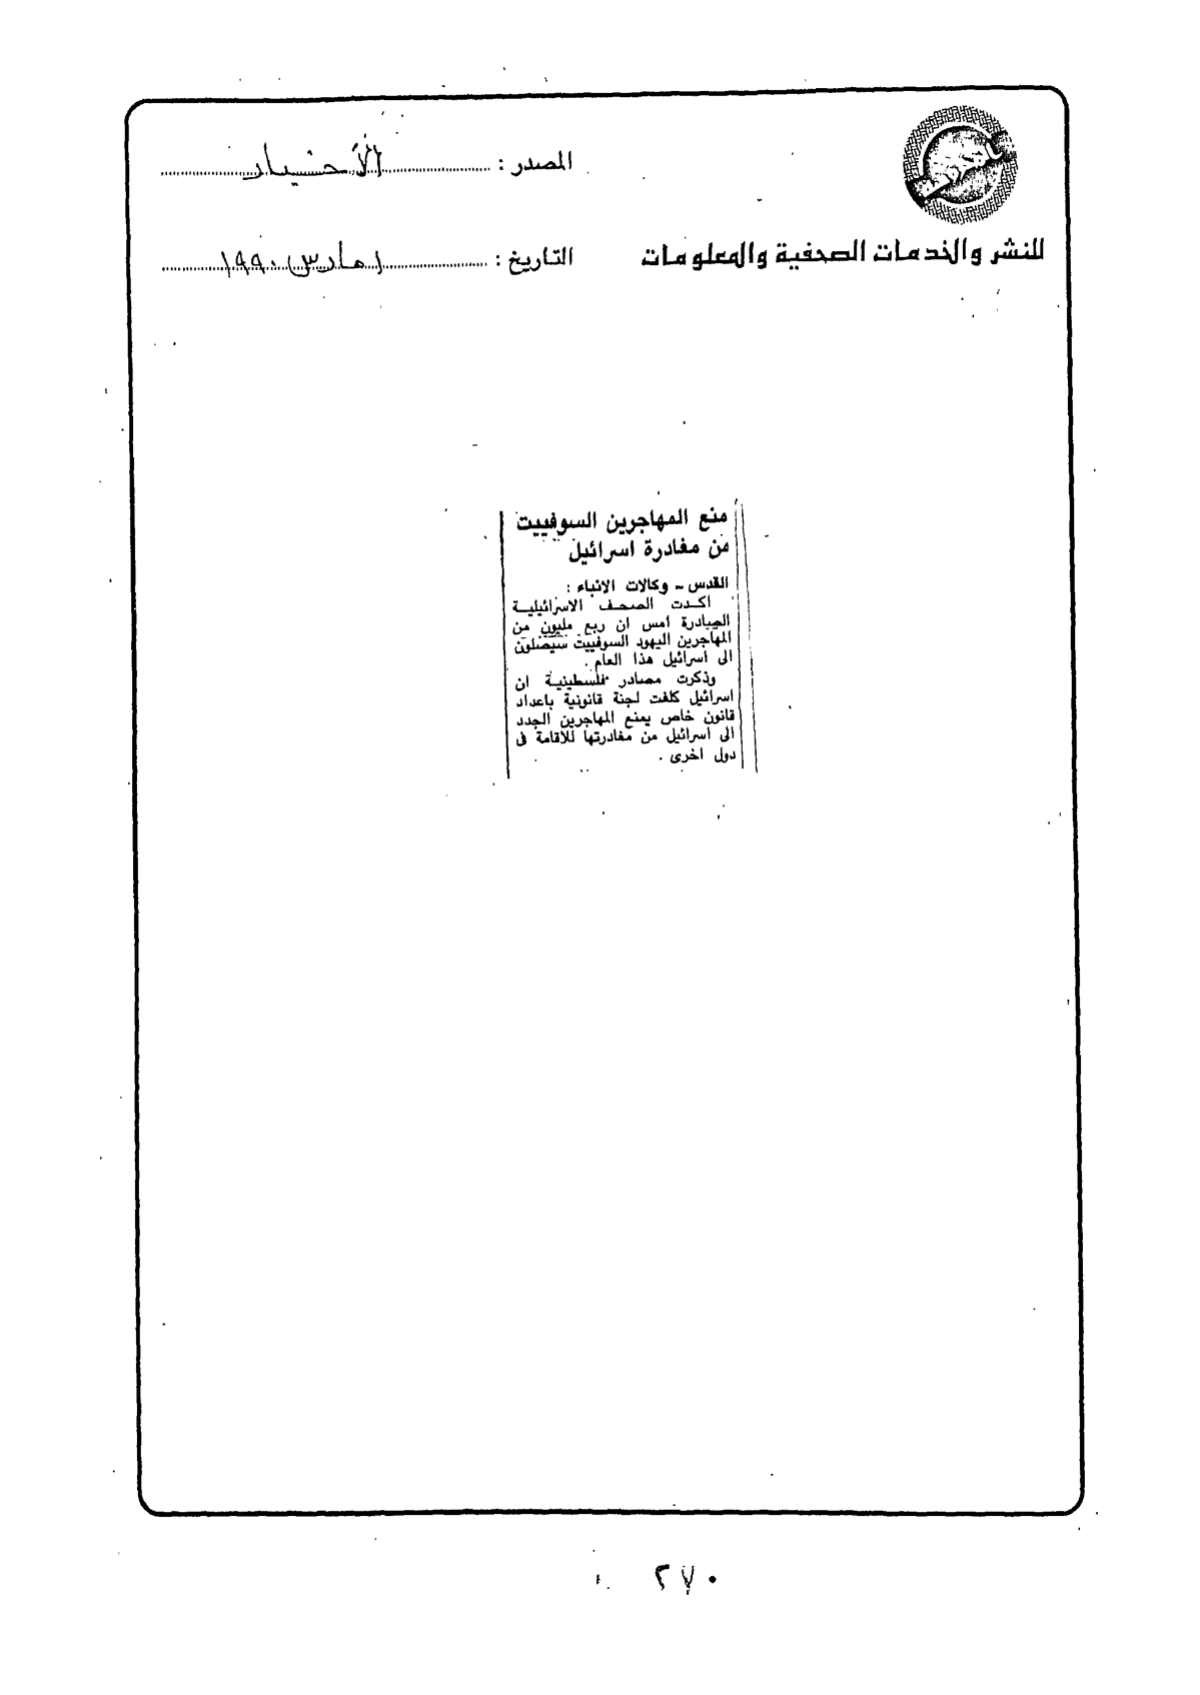 المصدر : الأخبار
للنشر والخدمات الصحفية والمعلومات
التاريخ : ١ مارس ١٩٩٠
منع المهاجرين السوفييت
من مغادرة اسرائيل
القدس - وكالات الانباء :
اكدت الصحف الاسرائيلية
الصادرة امس ان ربع مليون من
المهاجرين اليهود السوفييت سيصلون
الى اسرائيل هذا العام .
وذكرت مصادر فلسطينية ان
اسرائيل كلفت لجنة قانونية باعداد
قانون خاص يمنع المهاجرين الجدد
الى اسرائيل من مغادرتها للاقامة فى
دول اخرى .
٢٧٠